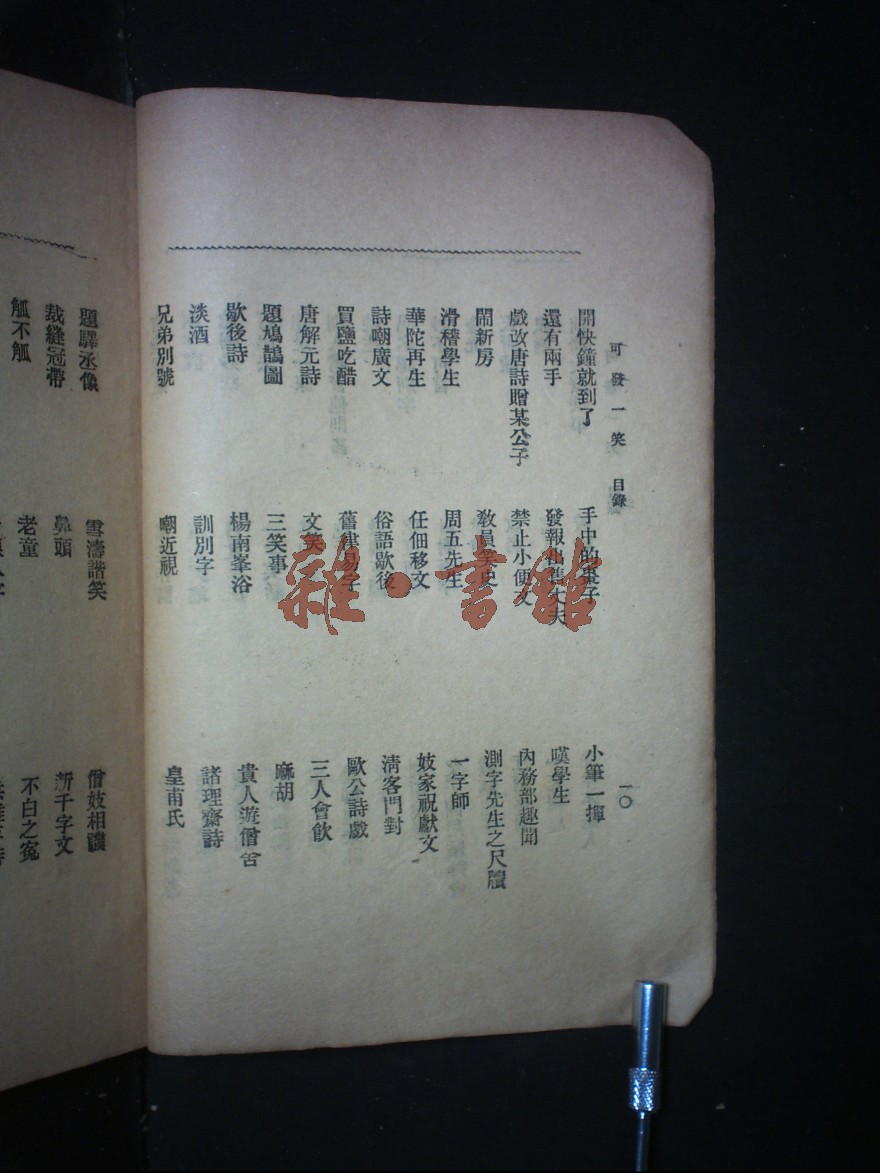 可發一笑 目錄 一〇
開快鐘就到了 手中的棗子 小筆一揮
還有兩手 發報出舊丈夫 嘆學生
戲改唐詩贈某公子 禁止小便文 內務部趣聞
鬧新房 教員笑史 測字先生之尺牘
滑稽學生 周五先生 一字師
華陀再生 任佃移文 妓家祝獻文
詩嘲廣文 俗語歇後 清客門對
買鹽吃醋 舊律易字 歐公詩戲
唐解元詩 文笑 三人會飲
題鳩鵲圖 三笑事 麻胡
歇後詩 楊南峯浴 貴人遊僧舍
淡酒 訓別字 諸理齋詩
兄弟別號 嘲近視 皇甫氏
題驛丞像 雪濤諧笑 僧妓相譏
裁縫冠帶 鼻頭 新千字文
觚不觚 老童 不白之冤
雜·書館